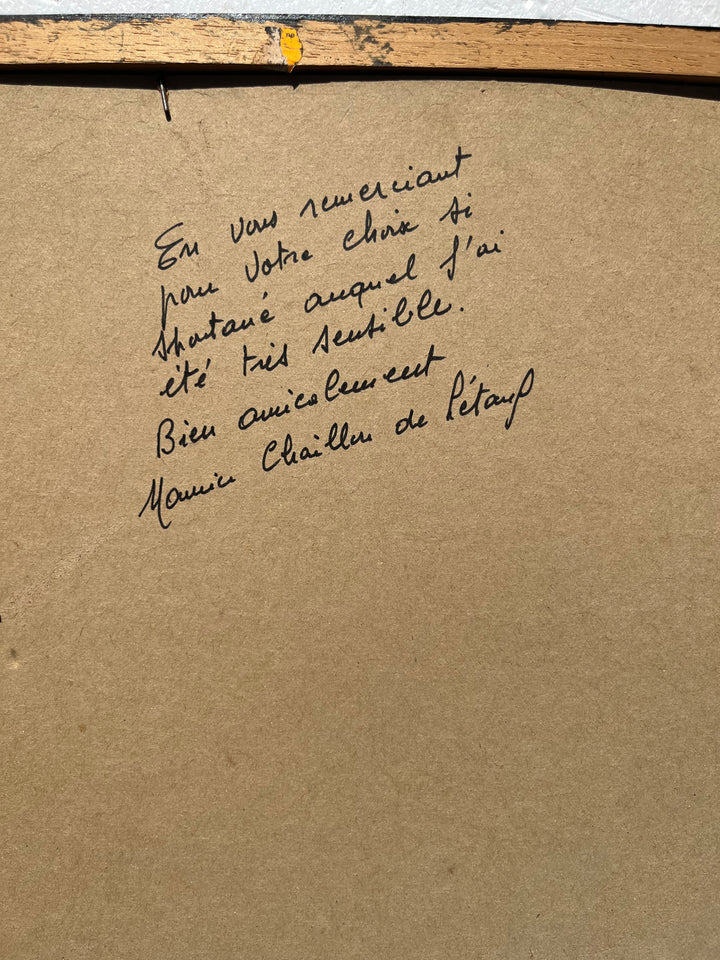 En vous remerciant
pour votre choix si
spontané auquel j'ai
été très sensible.
Bien amicalement
Maurice Chaillou de l'étang